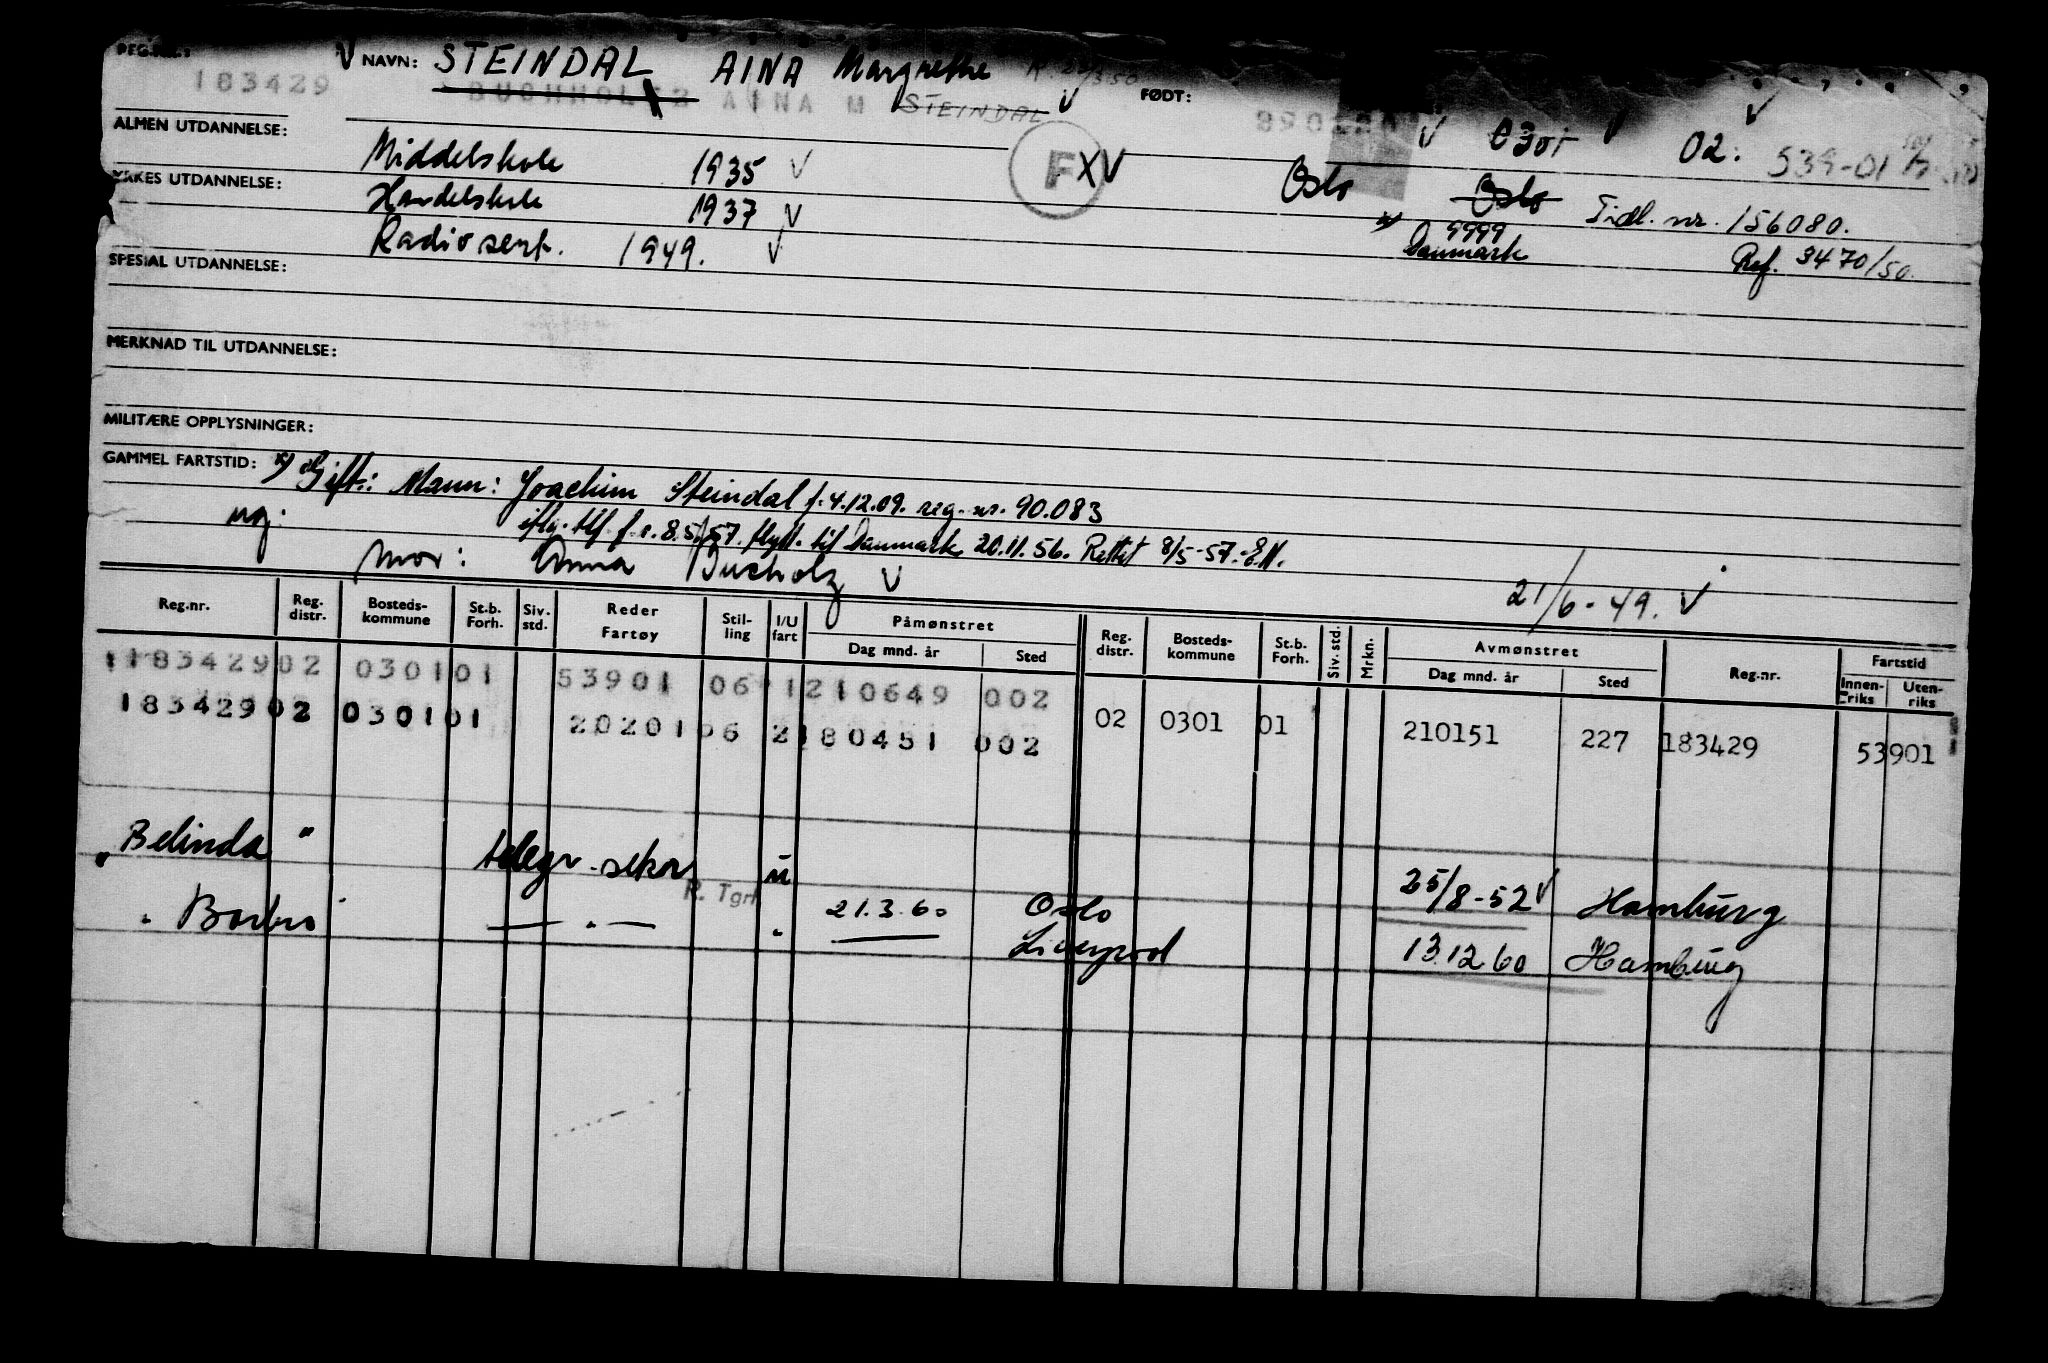 REG.NR.: 183429 V NAVN: STEINDAL AINA Margrethe
BUCHHOLTZ AINA M STEINDAL V FØDT:
V 0301 V 02: 539-01
ALMEN UTDANNELSE: Middelskole 1935 V F XV Oslo Oslo Tidl. nr. 156080.
YRKES UTDANNELSE: Handelskole 1937 V x) 9999
Radiosert. 1949. V Danmark Ref. 3470/50.
SPESIAL UTDANNELSE:
MERKNAD TIL UTDANNELSE:
MILITÆRE OPPLYSNINGER:
GAMMEL FARTSTID: x) Gift: Mann: Joachim Steindal f. 4.12.09. reg. nr. 90.083
iflg. tlf. f. 8.5/57. flytt. til Danmark 20.11.56. Rettet 8/5-57.
mor: Anna Bucholz V 21/6-49. V
Reg.nr. Reg. distr. Bosteds-kommune St.b. Forh. Siv. std. Reder Fartøy Stil-ling I/U fart Påmønstret Dag mnd. år Sted Reg. distr. Bosteds-kommune St.b. Forh. Siv. std. Mrkn. Avmønstret Dag mnd. år Sted Reg.nr. Fartstid Innen-riks Uten-riks
183429 02 0301 01 53901 06 1 210649 002 02 0301 01 210151 227 183429 53901
183429 02 0301 01 20201 06 2 180451 002
"Belinda" telegr. u 25/8-52 V Hamburg
R. Tgrf.
" Barbro — " — " 21.3.60 Oslo 13.12.60 Hamburg
Liverpool